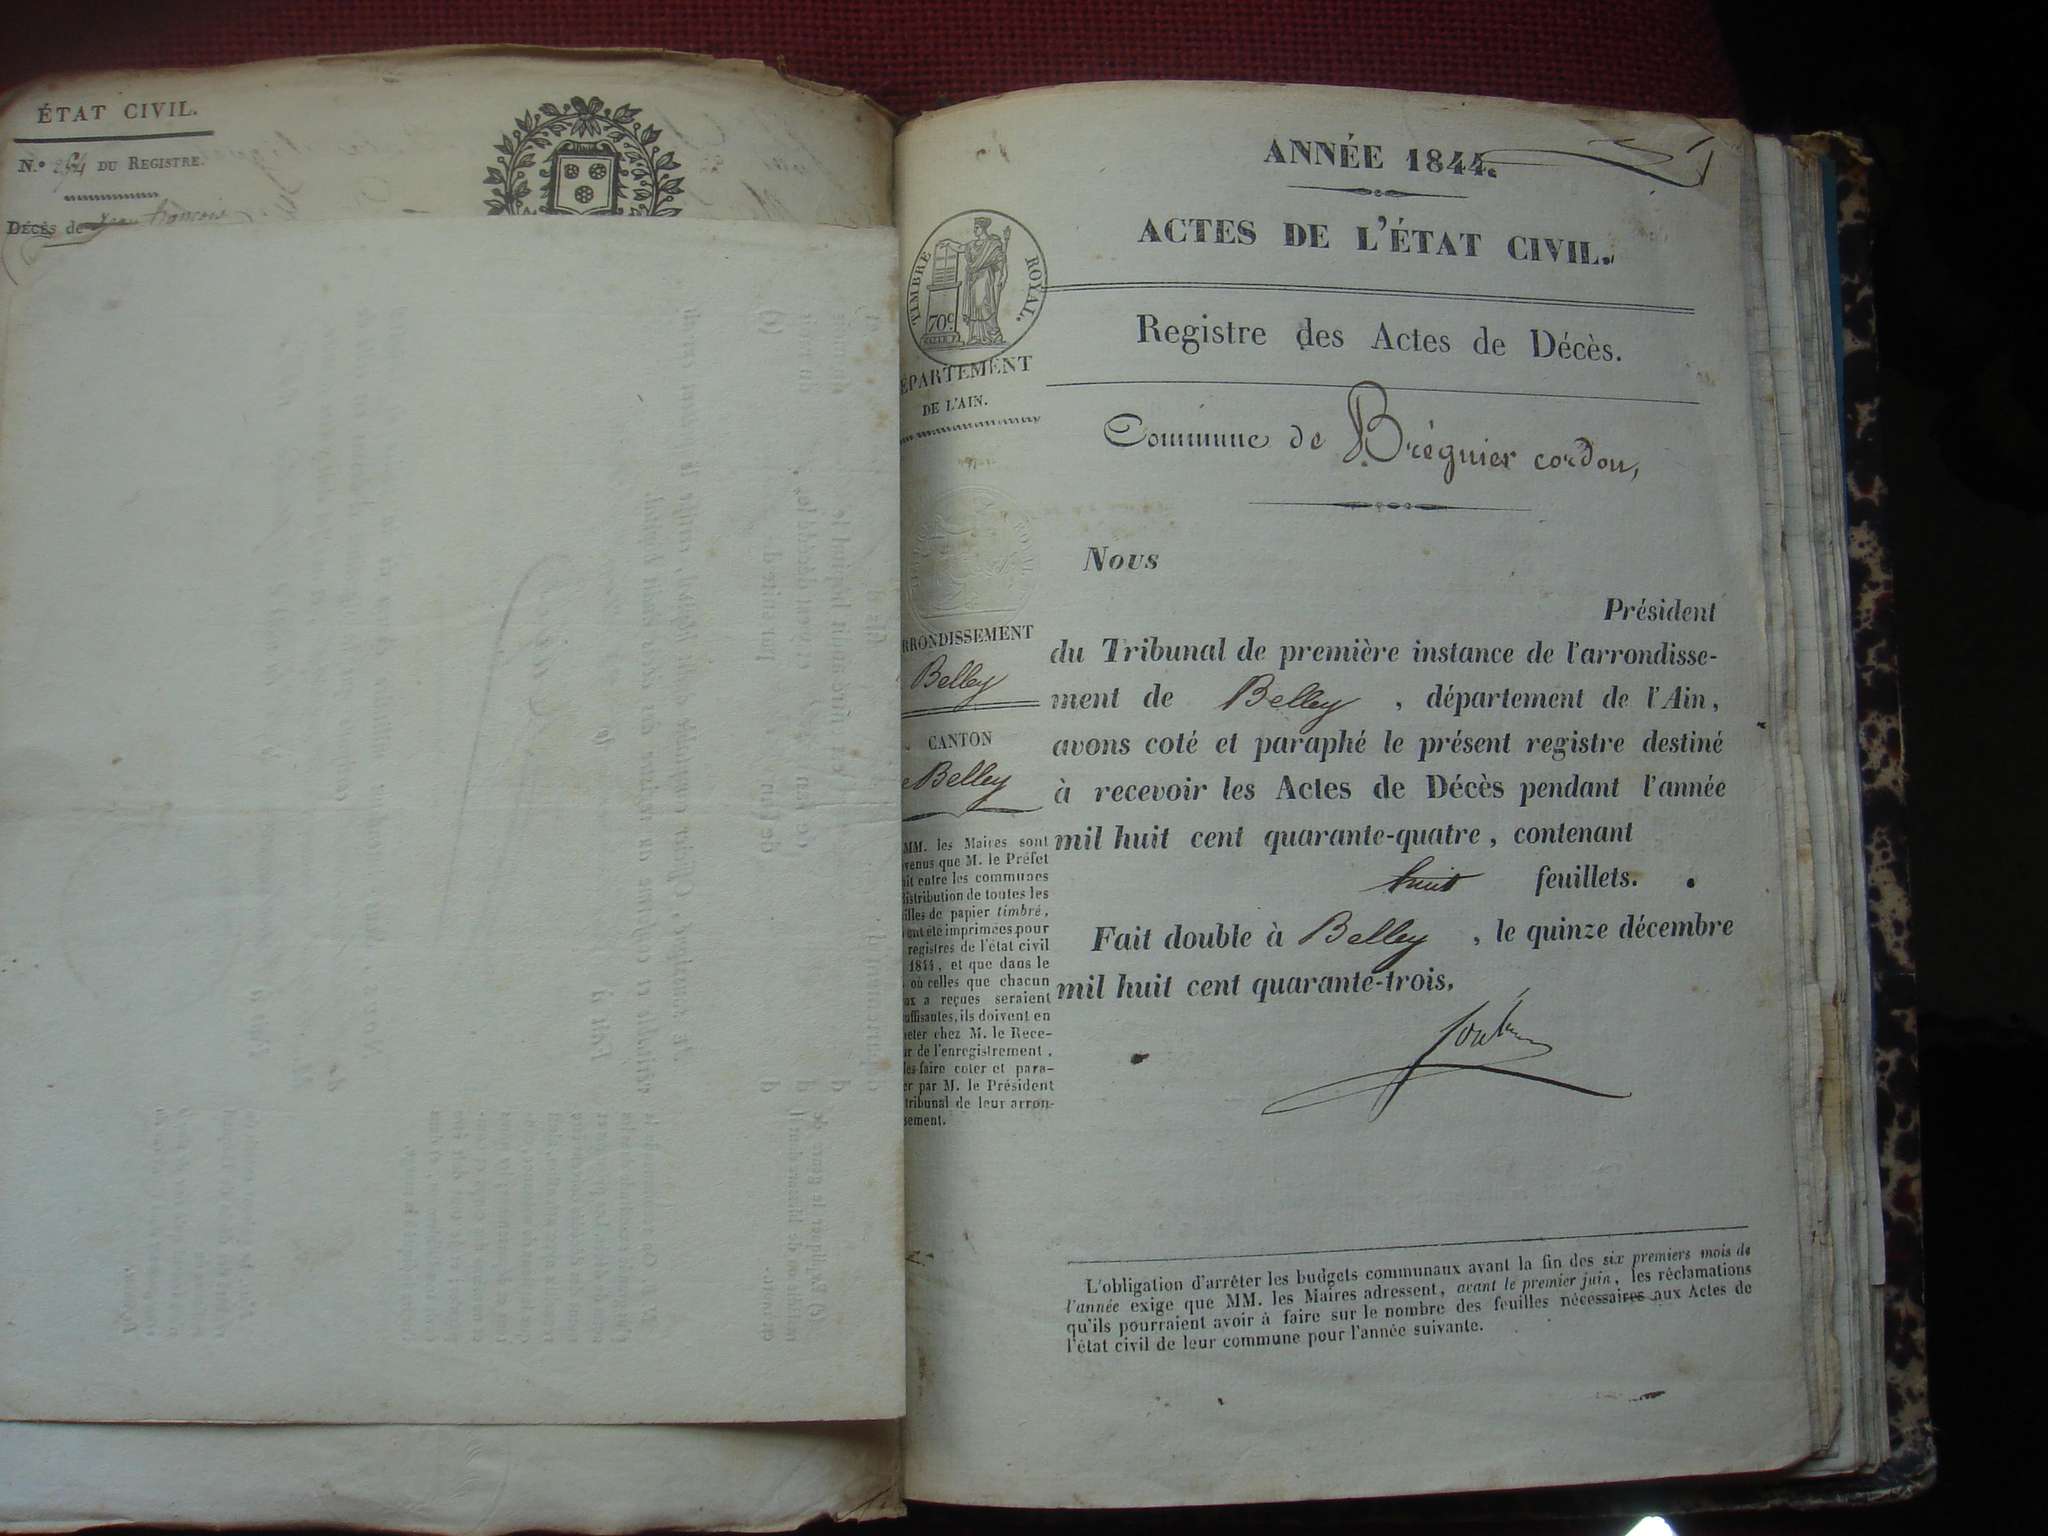 ÉTAT CIVIL.
N.º DU REGISTRE.
DÉCÈS de Jean françois
ANNÉE 1844.
ACTES DE L'ÉTAT CIVIL.
TIMBRE ROYAL.
70c
Registre des Actes de Décès.
ÉPARTEMENT
DE L'AIN.
Commune de Brégnier cordon,
Nous
Président
du Tribunal de première instance de l'arrondisse-
ment de Belley, département de l'Ain,
avons coté et paraphé le présent registre destiné
à recevoir les Actes de Décès pendant l'année
mil huit cent quarante-quatre, contenant
huit feuillets.
Fait double à Belley, le quinze décembre
mil huit cent quarante-trois,
RRONDISSEMENT
Belley
CANTON
e Belley
MM. les Maires sont
venus que M. le Préfet
ait entre les communes
distribution de toutes les
illes de papier timbré,
ont été imprimées pour
registres de l'état civil
1844, et que dans le
où celles que chacun
ux a reçues seraient
uffisantes, ils doivent en
heter chez M. le Rece-
ur de l'enregistrement,
les faire coter et para-
er par M. le Président
tribunal de leur arron-
sement.
L'obligation d'arrêter les budgets communaux avant la fin des six premiers mois de
l'année exige que MM. les Maires adressent, avant le premier juin, les réclamations
qu'ils pourraient avoir à faire sur le nombre des feuilles nécessaires aux Actes de
l'état civil de leur commune pour l'année suivante.